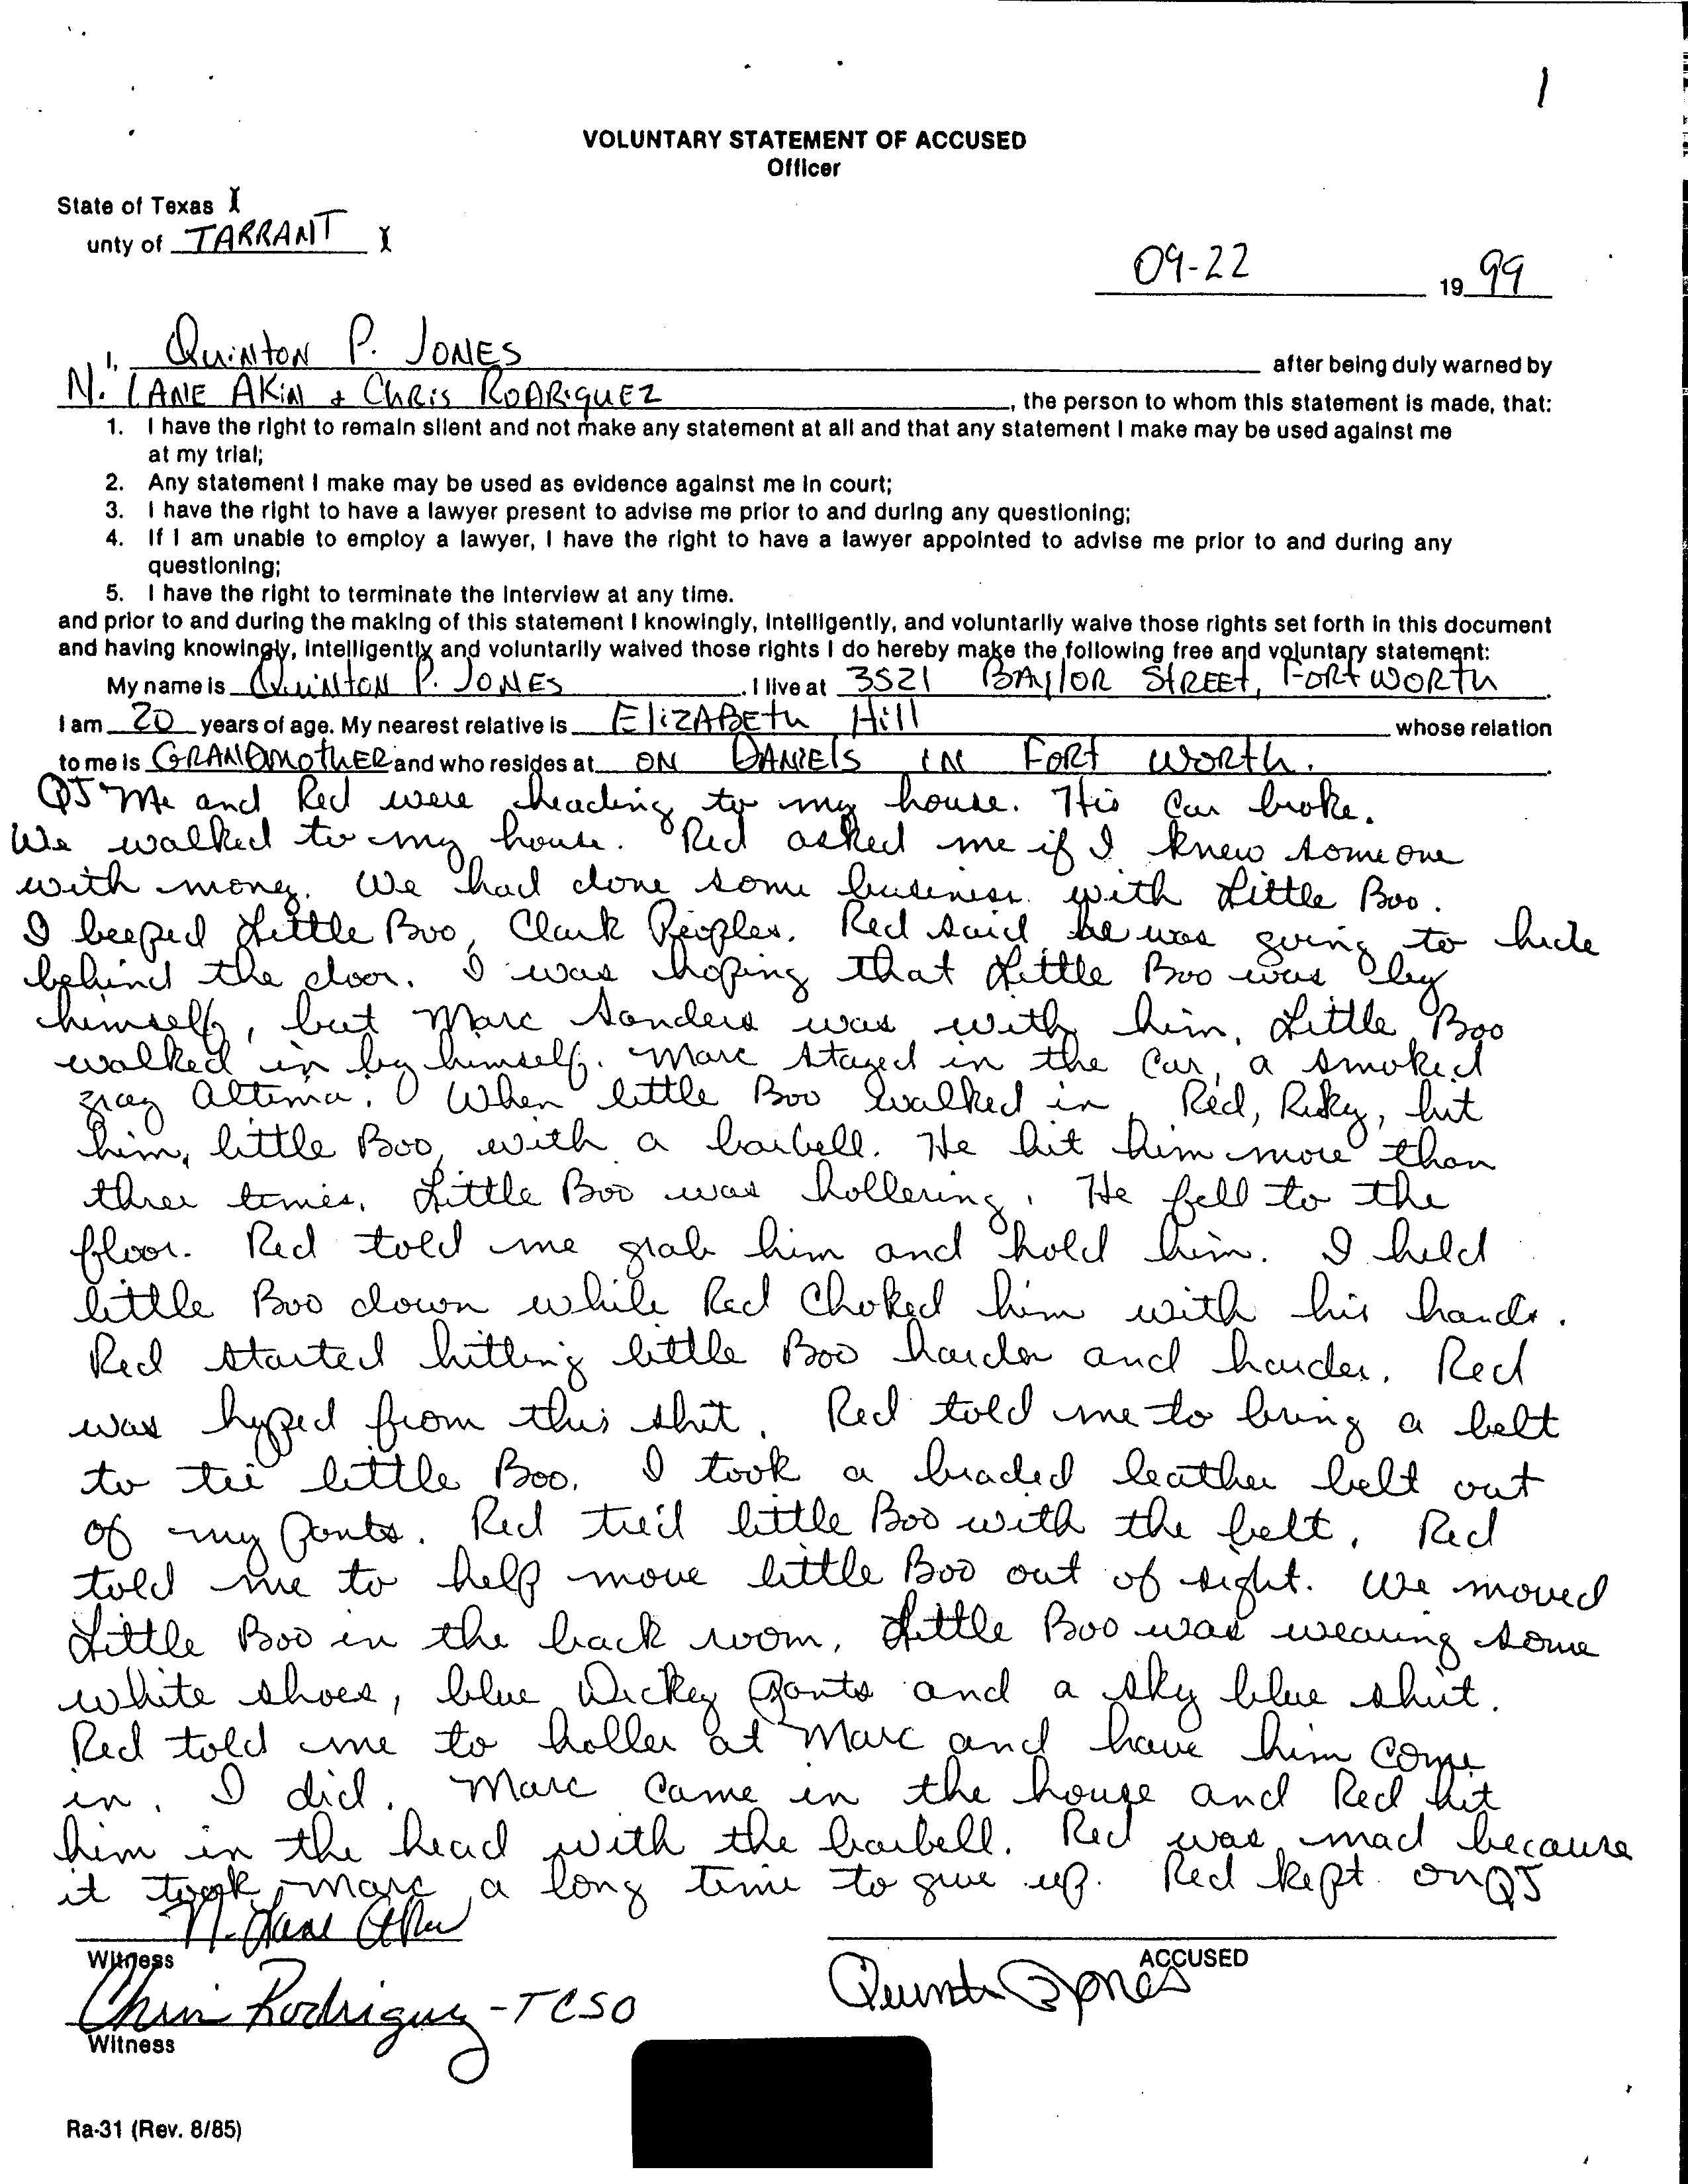 1
VOLUNTARY STATEMENT OF ACCUSED
Officer
State of Texas X
unty of TARRANT X
09-22 19 99
I, QUINTON P. JONES after being duly warned by
N. LANE AKIN + CHRIS RODRIGUEZ, the person to whom this statement is made, that:
1. I have the right to remain silent and not make any statement at all and that any statement I make may be used against me
at my trial;
2. Any statement I make may be used as evidence against me in court;
3. I have the right to have a lawyer present to advise me prior to and during any questioning;
4. If I am unable to employ a lawyer, I have the right to have a lawyer appointed to advise me prior to and during any
questioning;
5. I have the right to terminate the interview at any time.
and prior to and during the making of this statement I knowingly, intelligently, and voluntarily waive those rights set forth in this document
and having knowingly, intelligently and voluntarily waived those rights I do hereby make the following free and voluntary statement:
My name is QUINTON P. JONES. I live at 3521 BAYLOR STREET, FORT WORTH.
I am 20 years of age. My nearest relative is ELIZABETH Hill whose relation
to me is GRANDMOTHER and who resides at ON DANIELS IN FORT WORTH.
QJ Me and Red were heading to my house. His car broke.
We walked to my house. Red asked me if I knew someone
with money. We had done some business with Little Boo.
I beeped Little Boo, Clark Peoples. Red said he was going to hide
behind the door. I was hoping that Little Boo was by
himself, but Marc Sanders was with him. Little Boo
walked in by himself. Marc stayed in the car, a smoked
gray Altima. When little Boo walked in, Red, Ricky, hit
him, little Boo, with a barbell. He hit him more than
three times. Little Boo was hollering. He fell to the
floor. Red told me grab him and hold him. I held
little Boo down while Red choked him with his hands.
Red started hitting little Boo harder and harder. Red
was hyped from this shit. Red told me to bring a belt
to tie little Boo. I took a braded leather belt out
of my pants. Red tied little Boo with the belt. Red
told me to help move little Boo out of sight. We moved
Little Boo in the back room. Little Boo was wearing some
white shoes, blue Dickey pants and a sky blue shirt.
Red told me to holler at Marc and have him come
in. I did. Marc came in the house and Red hit
him in the head with the barbell. Red was mad because
it took Marc a long time to give up. Red kept on QJ
N. Lane Akin
Witness
ACCUSED
Chris Rodriguez - TCSO
Quinton Jones
Witness
Ra-31 (Rev. 8/85)